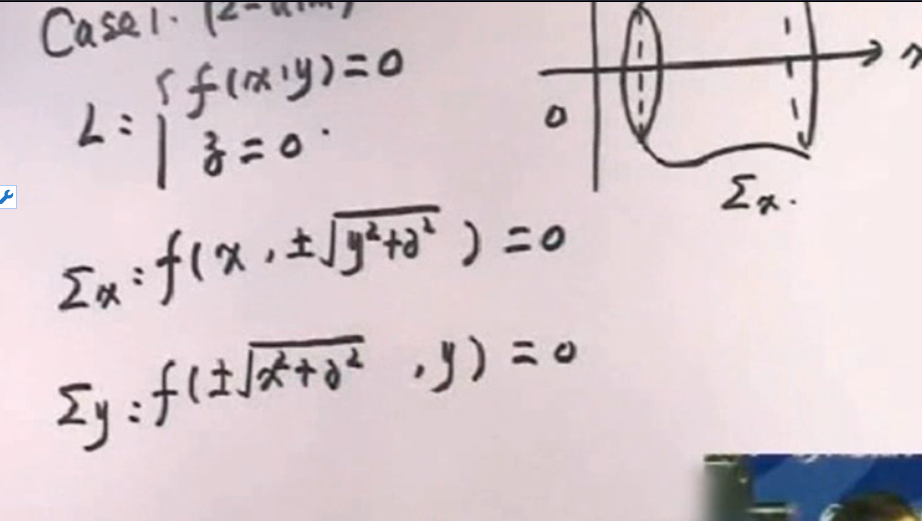 Case 1. (2-dim)
L: { f(x,y)=0
z=0.
O
x
Σx.
Σx: f(x, ±√(y²+z²))=0
Σy: f(±√(x²+z²), y)=0